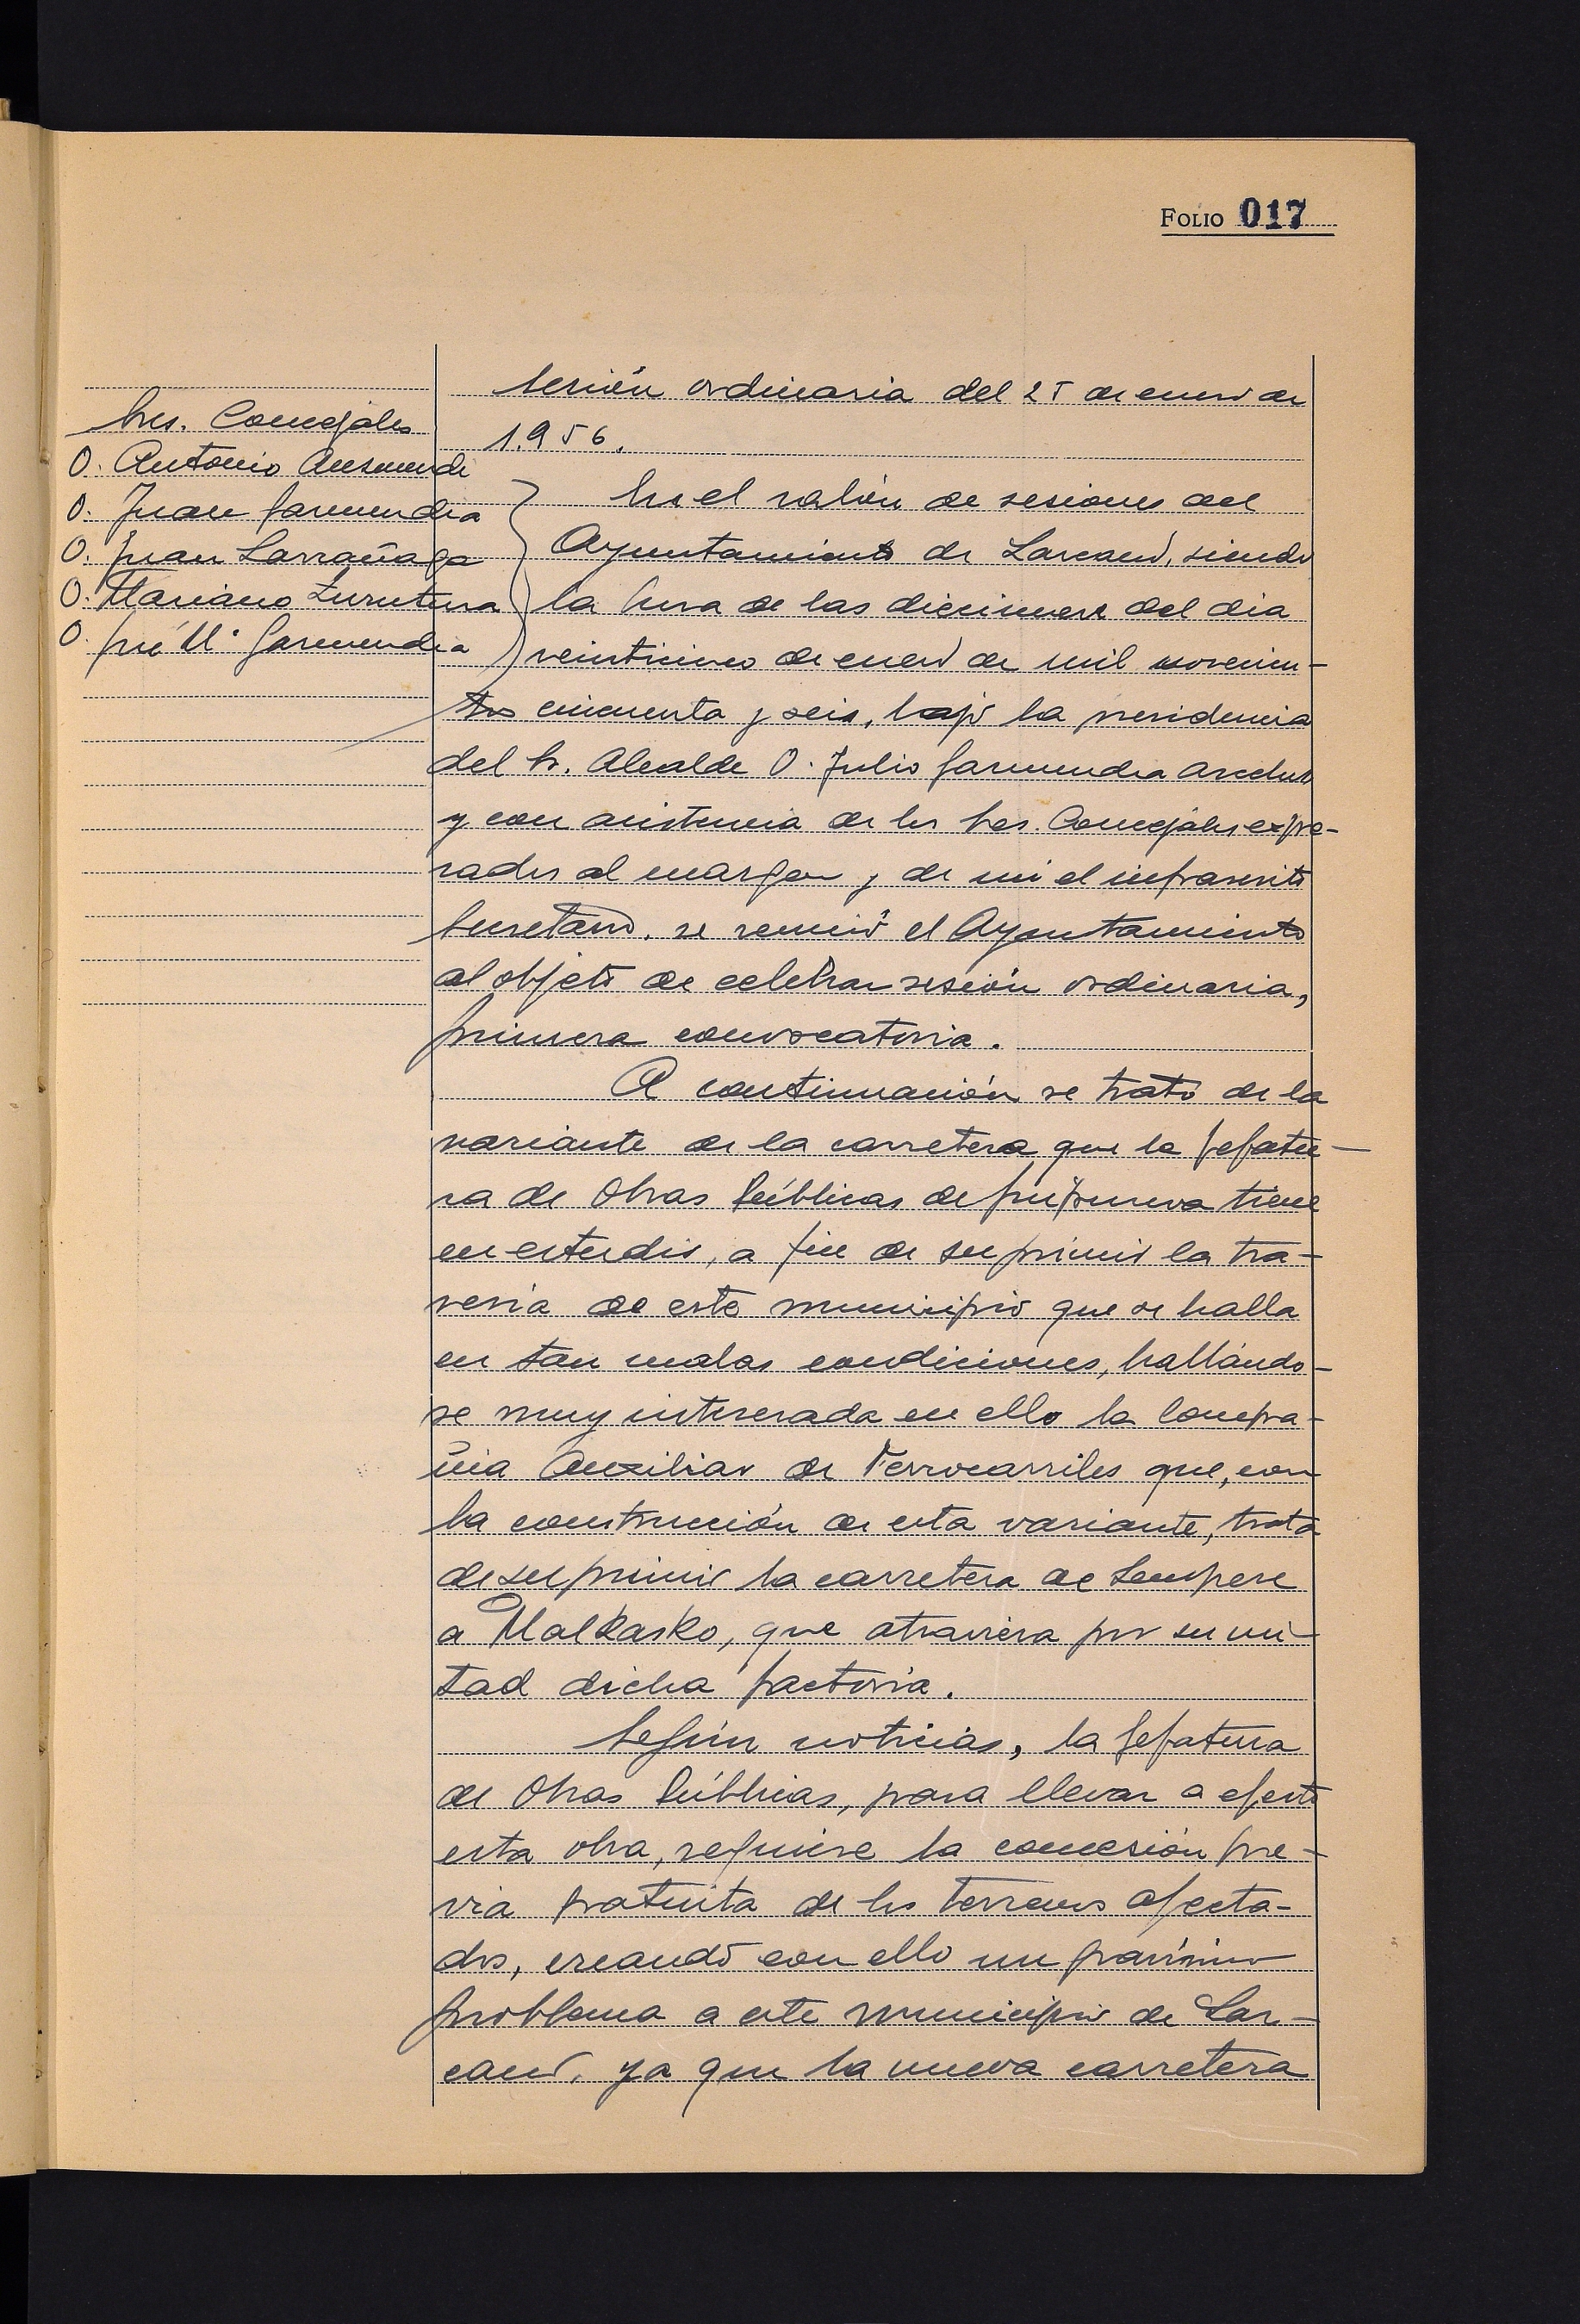 FOLIO 017
Sesión ordinaria del 25 de enero de
1.956.
Sres. Concejales
D. Antonio Ansuondi
D. Juan Garmendia
D. Juan Larrañaga
D. Mariano Zurutuza
D. José Mª Garmendia
En el salón de sesiones del
Ayuntamiento de Lazcano, siendo
la hora de las diecinueve del dia
veinticinco de enero de mil novecien-
tos cincuenta y seis, bajo la presidencia
del Sr. Alcalde D. Julio Garmendia
y con asistencia de los Sres. Concejales expre-
sados al margen y de mi el infrascrito
Secretario, se reunió el Ayuntamiento
al objeto de celebrar sesión ordinaria,
primera convocatoria.
A continuación se trató de la
variante de la carretera que la Jefatu-
ra de Obras Públicas de Guipúzcoa tiene
en estudio, a fin de suprimir la tra-
vesia de este municipio que se halla
en tan malas condiciones, hallándo-
se muy interesada en ello la Compa-
ñia Auxiliar de Ferrocarriles que, con
la construcción de esta variante, trata
de suprimir la carretera de Sempere
a Malkasko, que atraviesa por su mi-
tad dicha factoria.
Según noticias, la Jefatura
de Obras Públicas, para llevar a efecto
esta obra, requiere la concesión pre-
via gratuita de los terrenos afecta-
dos, creando con ello un gravísimo
problema a este municipio de Laz-
cano, ya que la nueva carretera